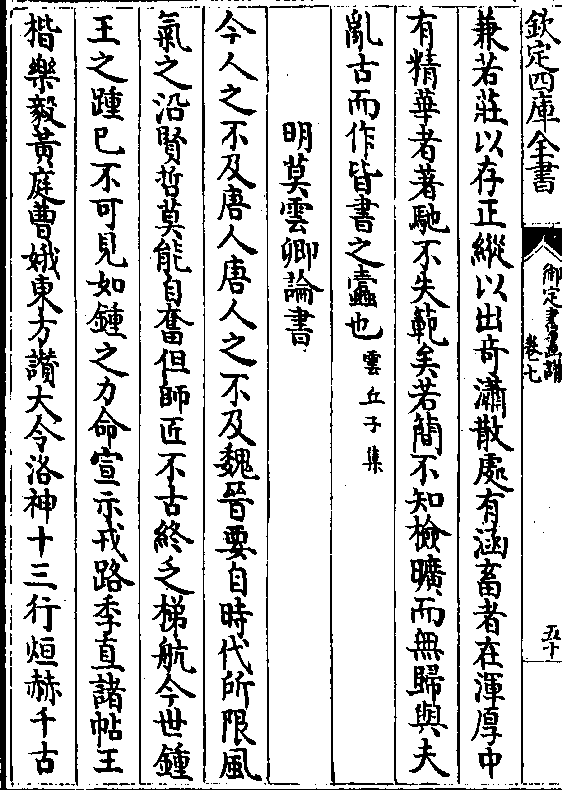 欽定四庫全書
御定書畫譜
卷七
五十
兼若莊以存正縱以出奇瀟散處有涵畜者在渾厚中
有精華者著馳不失範矣若簡不知檢曠而無歸與夫
亂古而作皆書之蠹也雲丘子集
明莫雲卿論書
今人之不及唐人唐人之不及魏晉要自時代所限風
氣之沿賢哲莫能自奮但師匠不古終乏梯航今世鍾
王之踵已不可見如鍾之力命宣示戎路季直諸帖王
楷樂毅黃庭曹娥東方讚大令洛神十三行烜赫千古